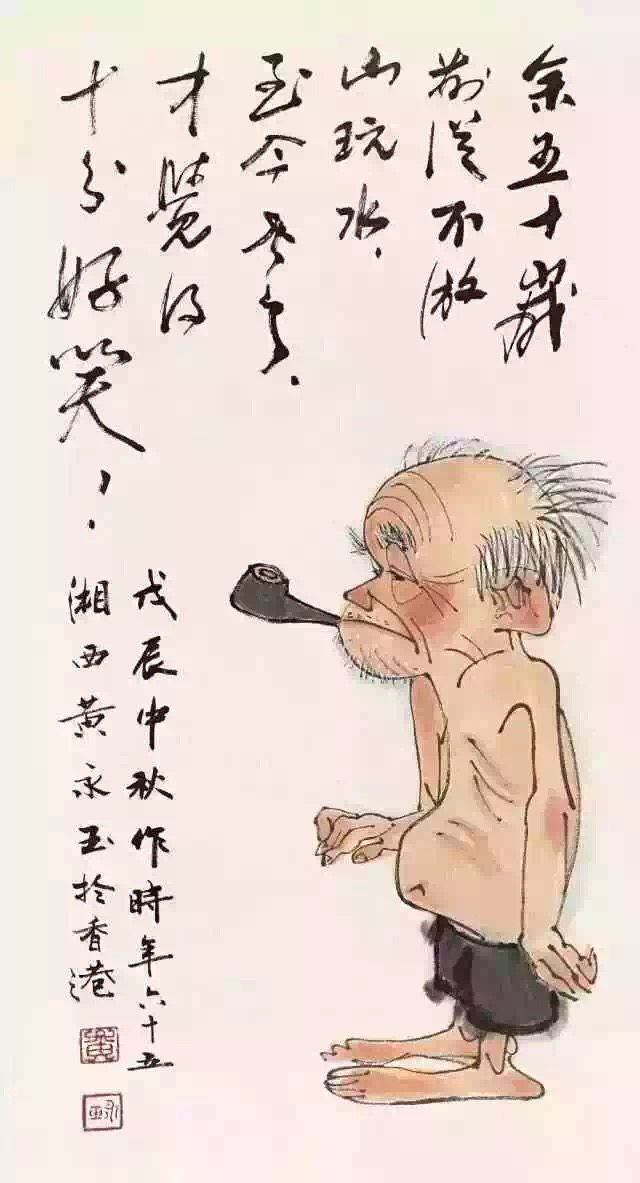 余五十歲
前從不游
山玩水，
至今老矣，
才覺得
十分好笑，，.
戊辰中秋作時年六十五
湘西黄永玉於香港
黄